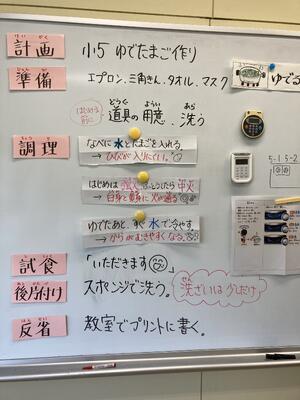 けい かく
計画
小5 ゆでたまご作り
じゅん び
準備
エプロン、三角きん、タオル、マスク
ゆでる
はじめる前に
どうぐ ようい あら
道具の用意、洗う
ちょう り
調理
なべに水とたまごを入れる。
→ ひびが入りにくい。
5-1 5-2
はじめは強火 ふっとうしたら中火
→ 白身と黄身に火が通る
ゆでたあと、すぐ水で冷やす。
→ からがむきやすくなる。
し しょく
試食
「いただきます」
あと かた づ
後片付け
スポンジで洗う。
洗ざいは少しだけ
はん せい
反省
教室でプリントに書く。